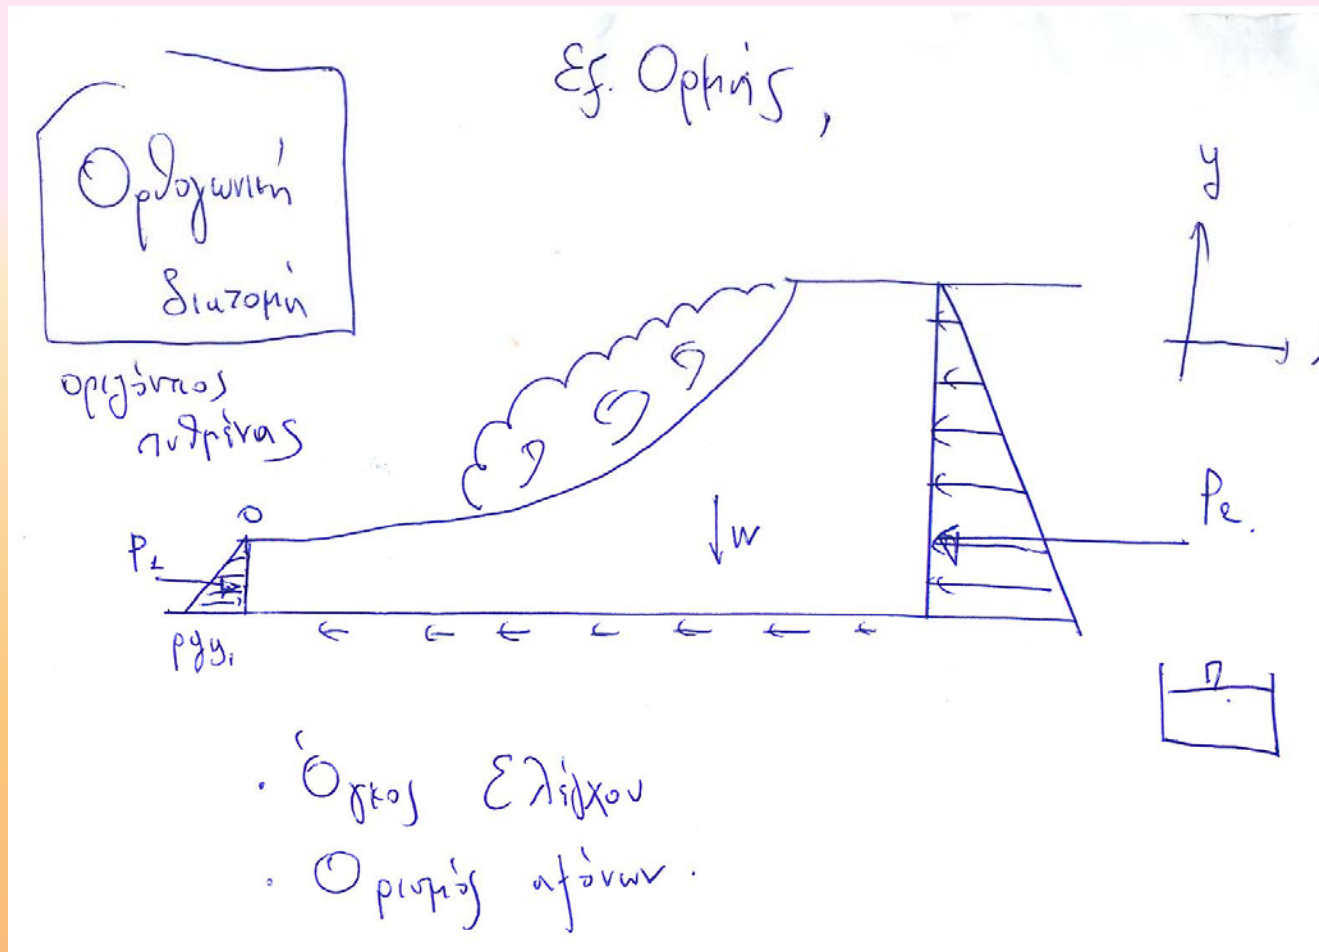 Εξ. Ορμής,
Ορθογωνική
διατομή
οριζόντιος
πυθμένας
y
0
P1
W
P2.
ρgy1
· Όγκος Ελέγχου
· Ορισμός αξόνων.